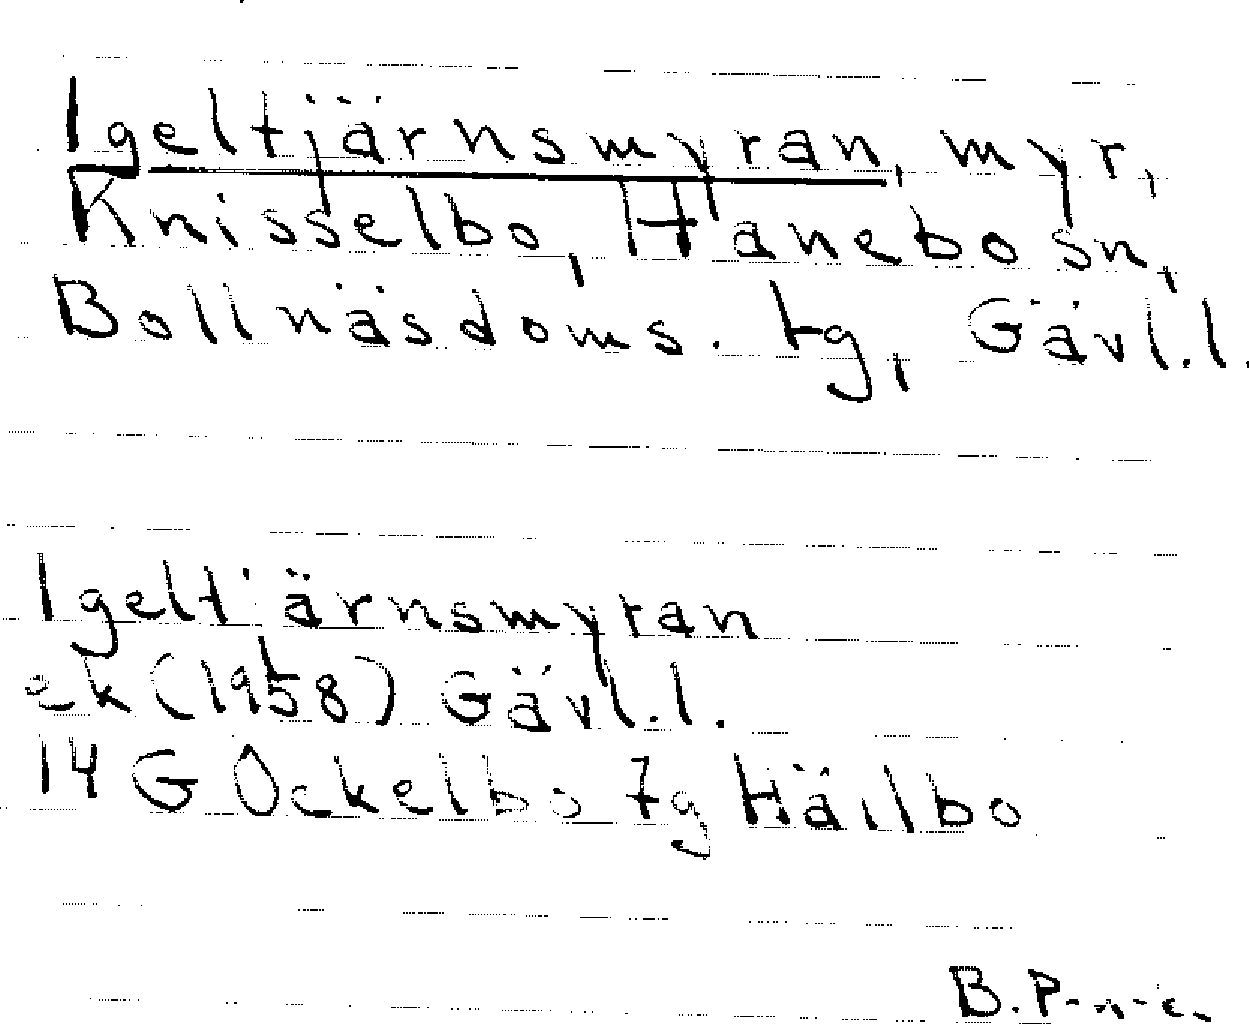 Igeltjärnsmyran, myr,
Knisselbo, Hanebo sn,
Bollnäsdoms. tg, Gävl.l.
Igeltjärnsmyran
ek (1958) Gävl.l.
14 G Ockelbo 7g Häilbo
B.